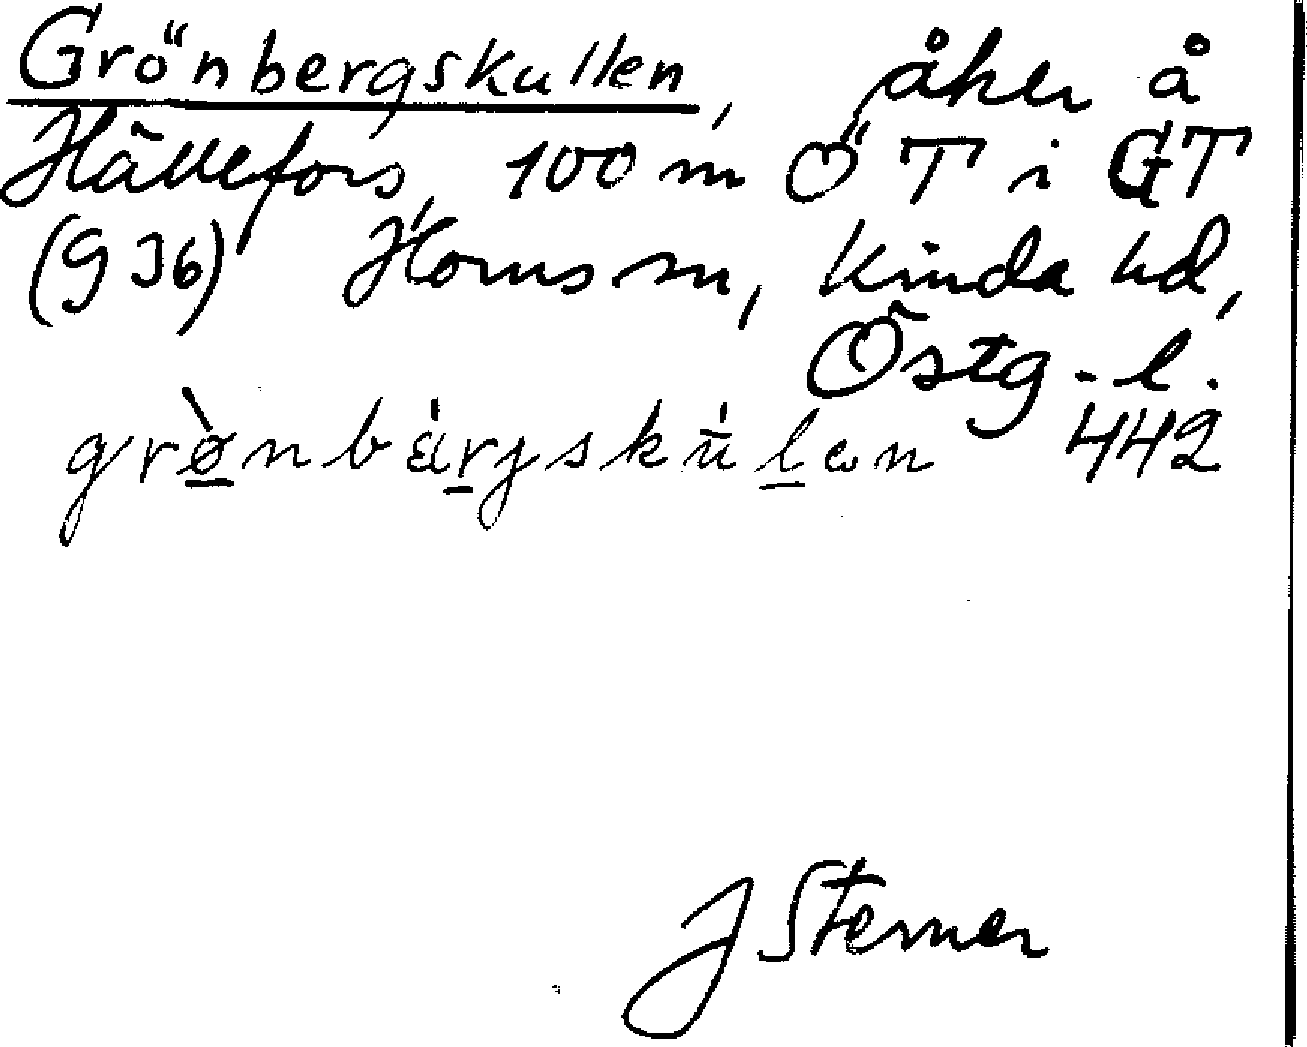 Grönbergskullen, åker å
Hällefors, 100 m Ö T i GT
(9 J6) Horns sn, Kinda hd,
Östg.l.
grø̀nbä́rgskúlen 442
J Sterner